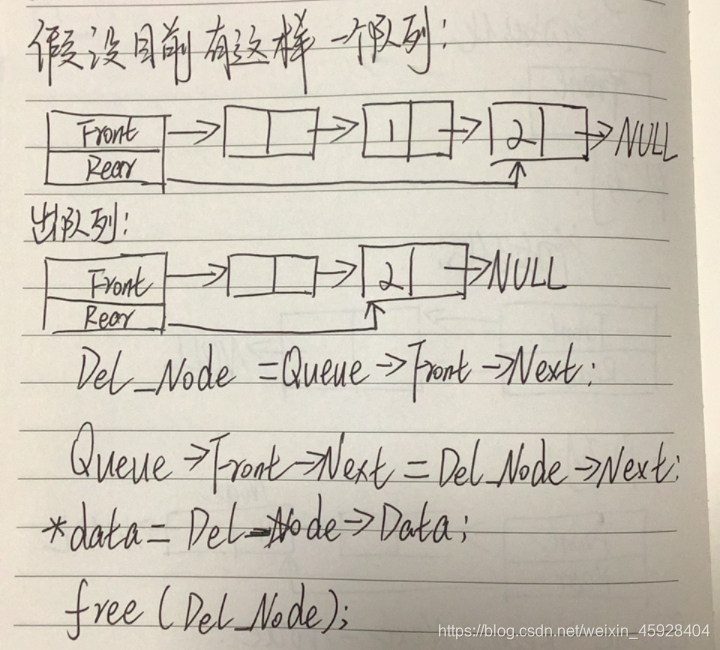 假设目前有这样一个队列:
Front
1
2
NULL
Rear
出队列:
Front
2
NULL
Rear
Del_Node = Queue->Front->Next;
Queue->Front->Next = Del_Node->Next;
*data = Del_Node->Data;
free(Del_Node);
https://blog.csdn.net/weixin_45928404